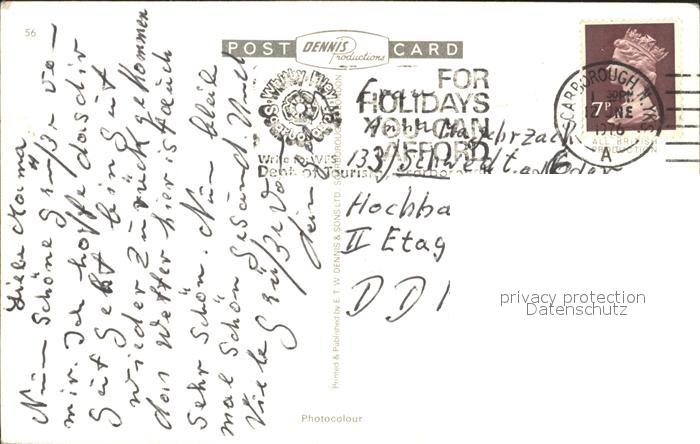 56
POST DENNIS Productions CARD
Liebe Mama
Nun Schöne Grüße von
mir. Ich hoffe dass dir
Gut Geht bin Gut
wieder zurück gekommen
das Wetter hier ist auch
Sehr Schön. Nun bleib
mal Schön Gesund. Und
Viele Grüße von
dein
Printed & Published by E.T.W. DENNIS & SONS LTD. SCARBOROUGH
Photocolour
FOR
HOLIDAYS
YOU CAN
AFFORD
Write for
Dept. of Tourism, Scarborough
SCARBOROUGH N. YKS
30PM
1976
A
7P
ALL BRITISH
PRODUCTION
Frau
133 / Schwedt a/Oder
Hochha
II Etag
DDR
privacy protection
Datenschutz